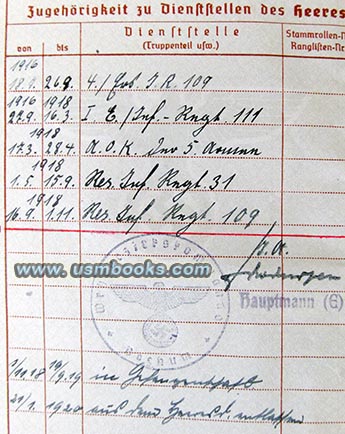 Zugehörigkeit zu Dienststellen des Heeres
von
bis
Dienststelle
(Truppenteil usw.)
Stammrollen-N
Ranglisten-Nr
1916
18.9. 26.9. 4./ J.R. 109
1916 1918
27.9. 16.3. I E./Inf.-Regt. 111
1918
17.3. 28.4. A.O.K. der 5 Armee
1918
1.5. 15.9. Res. Inf. Regt. 31
1918
16.9. 1.11. Res. Inf. Regt. 109
www.usmbooks.com
I.A.
Hauptmann (E)
Bochum
1/11.18 19/9.19 in Gefangenschaft
21/1. 1920 aus dem Heeresd. entlassen